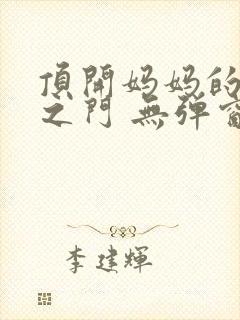 頂開妈妈的
之门 無弹窗
李建輝